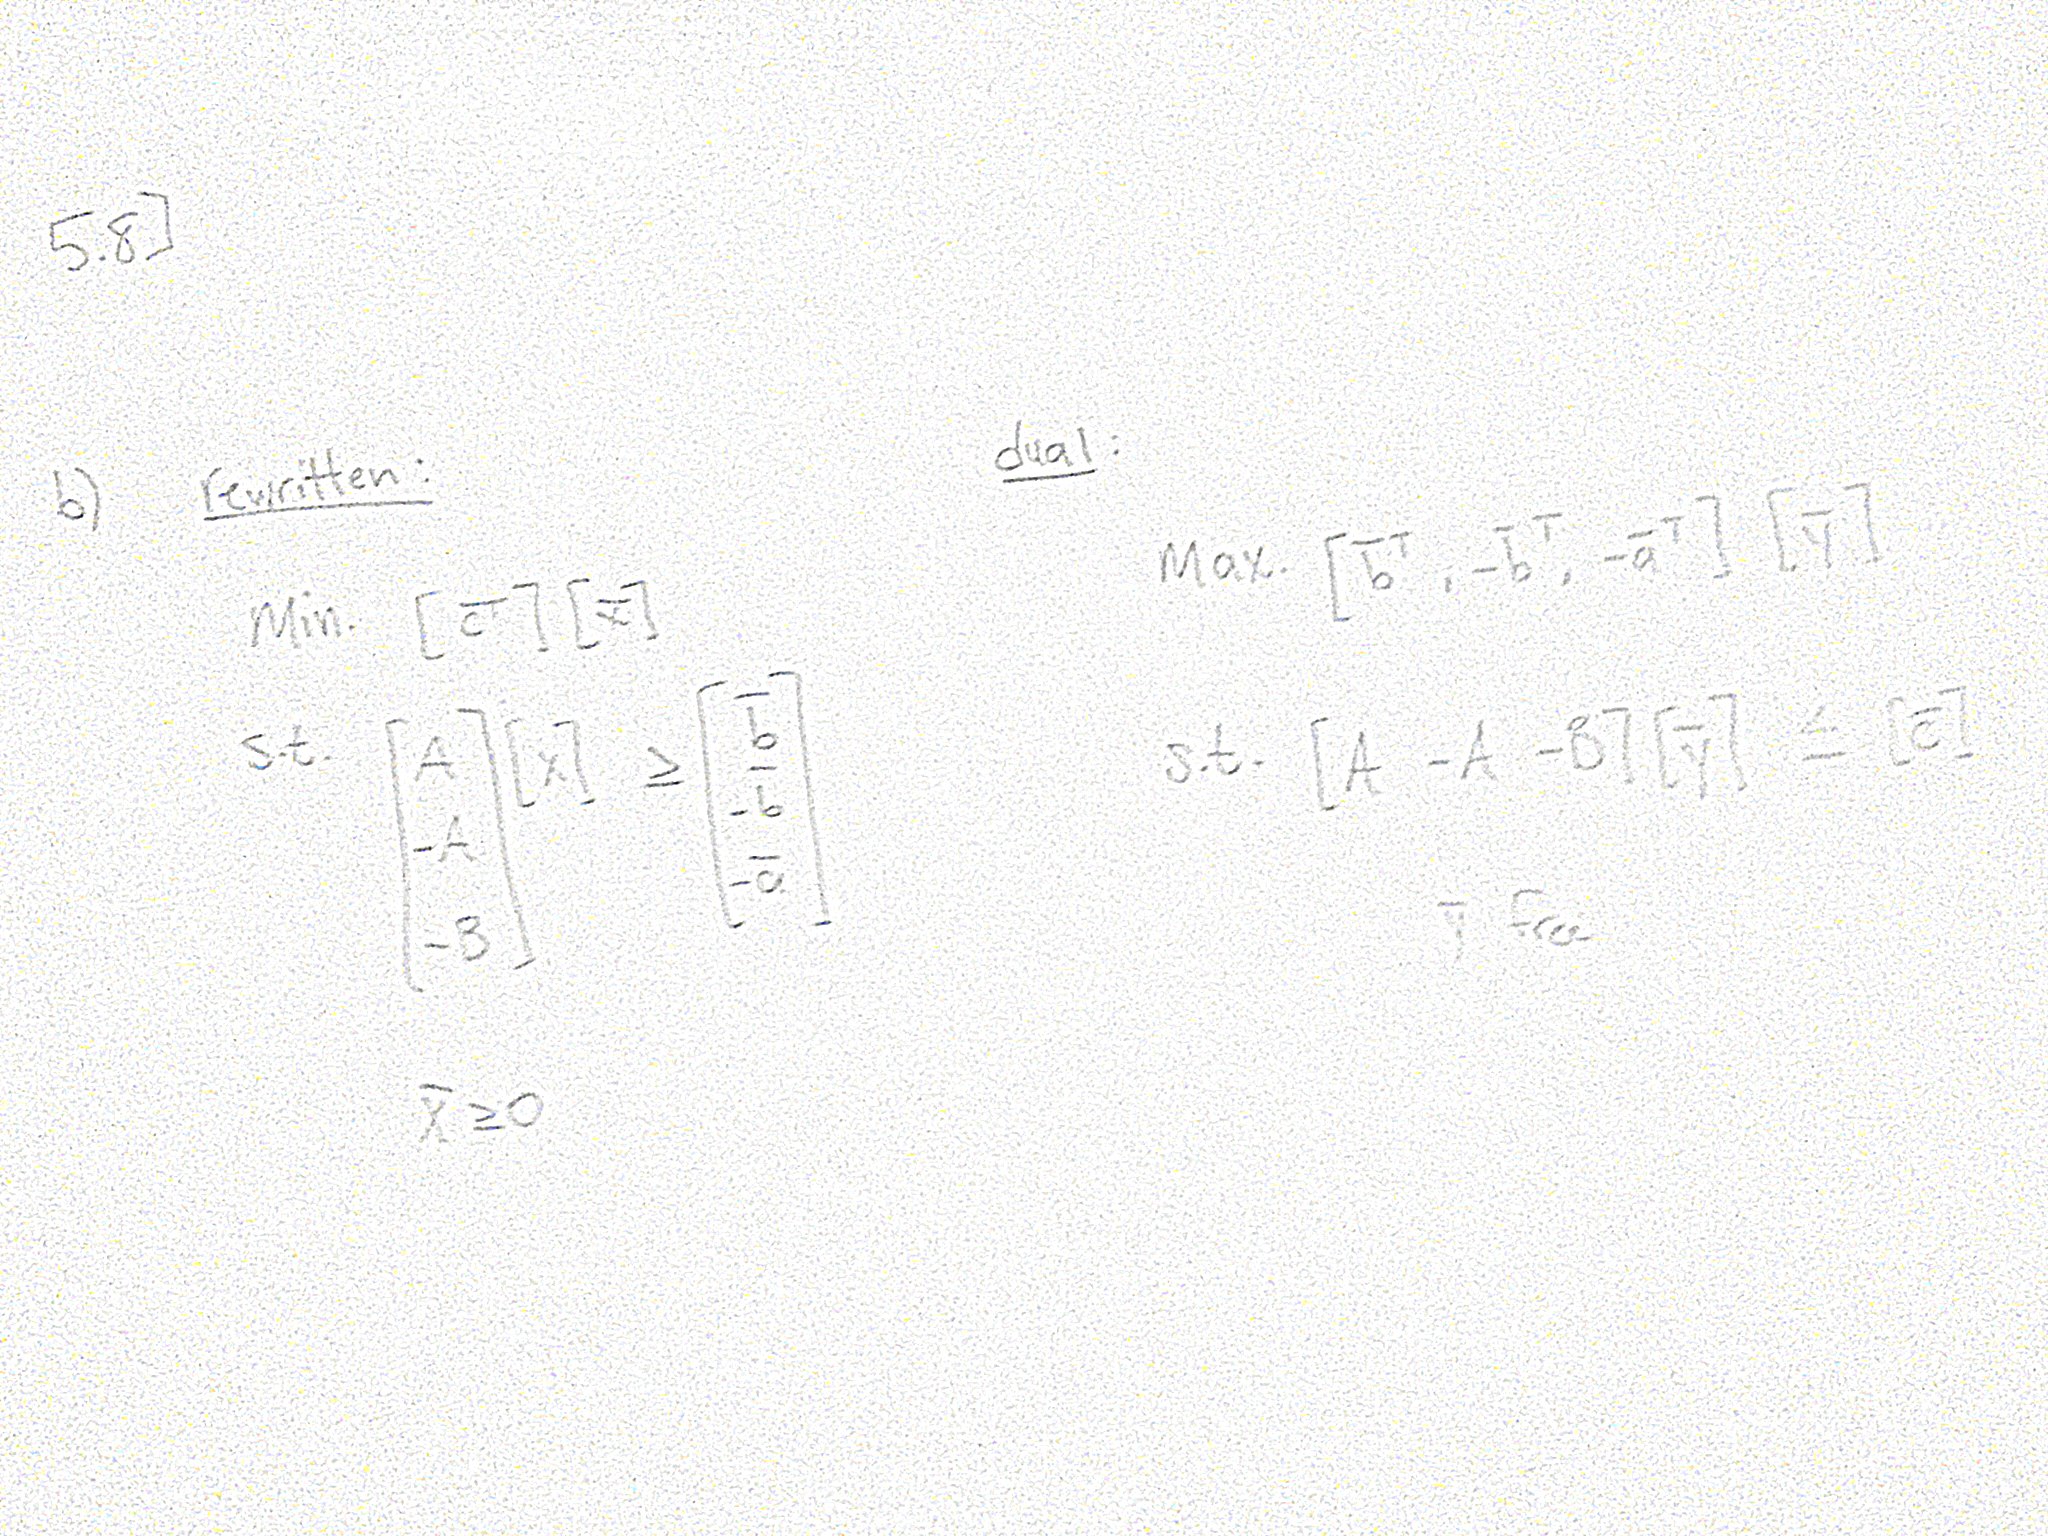 5.8]
b) rewritten:
Min. [c̄ᵀ][x̄]
s.t. [A -A -B][x] ≥ [b̄ -b̄ -ā]
x̄ ≥ 0
dual:
Max. [b̄ᵀ, -b̄ᵀ, -āᵀ][ȳ]
s.t. [A -A -B][ȳ] ≤ [c̄]
ȳ free